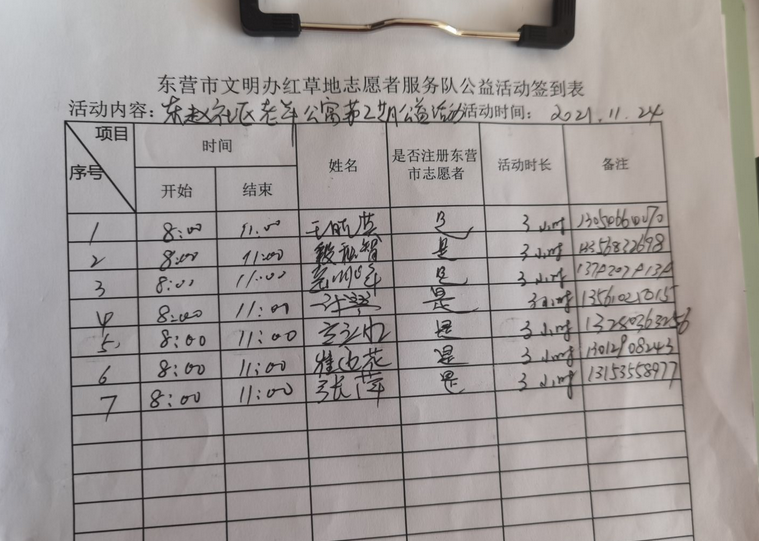 东营市文明办红草地志愿者服务队公益活动签到表
活动内容：东赵社区老年公寓第2期公益活动 活动时间：2021.11.24
项目 序号 时间 姓名 是否注册东营市志愿者 活动时长 备注
开始 结束
1 8:00 11:00 是 3小时
2 8:00 11:00 是 3小时
3 8:00 11:00 是 3小时
4 8:00 11:00 许 是 3小时
5 8:00 11:00 是 3小时 13280363256
6 8:00 11:00 崔 花 是 3小时 13012908243
7 8:00 11:00 张萍 是 3小时 13153558977